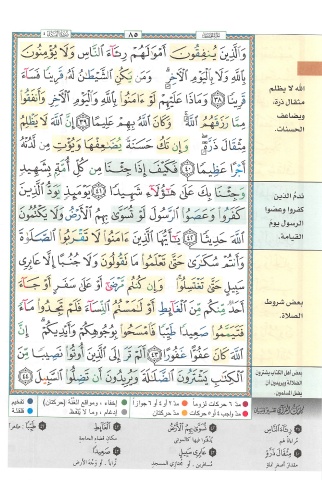 ٨٥
وَالَّذِينَ يُنفِقُونَ أَمْوَالَهُمْ رِئَاءَ النَّاسِ وَلَا يُؤْمِنُونَ
بِاللَّهِ وَلَا بِالْيَوْمِ الْآخِرِ ۗ وَمَن يَكُنِ الشَّيْطَانُ لَهُ قَرِينًا فَسَاءَ
قَرِينًا ٣٨ وَمَاذَا عَلَيْهِمْ لَوْ آمَنُوا بِاللَّهِ وَالْيَوْمِ الْآخِرِ وَأَنفَقُوا
مِمَّا رَزَقَهُمُ اللَّهُ ۚ وَكَانَ اللَّهُ بِهِمْ عَلِيمًا ٣٩ إِنَّ اللَّهَ لَا يَظْلِمُ
مِثْقَالَ ذَرَّةٍ ۖ وَإِن تَكُ حَسَنَةً يُضَاعِفْهَا وَيُؤْتِ مِن لَّدُنْهُ
أَجْرًا عَظِيمًا ٤٠ فَكَيْفَ إِذَا جِئْنَا مِن كُلِّ أُمَّةٍ بِشَهِيدٍ
وَجِئْنَا بِكَ عَلَىٰ هَٰؤُلَاءِ شَهِيدًا ٤١ يَوْمَئِذٍ يَوَدُّ الَّذِينَ
كَفَرُوا وَعَصَوُا الرَّسُولَ لَوْ تُسَوَّىٰ بِهِمُ الْأَرْضُ وَلَا يَكْتُمُونَ
اللَّهَ حَدِيثًا ٤٢ يَا أَيُّهَا الَّذِينَ آمَنُوا لَا تَقْرَبُوا الصَّلَاةَ
وَأَنتُمْ سُكَارَىٰ حَتَّىٰ تَعْلَمُوا مَا تَقُولُونَ وَلَا جُنُبًا إِلَّا عَابِرِي
سَبِيلٍ حَتَّىٰ تَغْتَسِلُوا ۚ وَإِن كُنتُم مَّرْضَىٰ أَوْ عَلَىٰ سَفَرٍ أَوْ جَاءَ
أَحَدٌ مِّنكُم مِّنَ الْغَائِطِ أَوْ لَامَسْتُمُ النِّسَاءَ فَلَمْ تَجِدُوا مَاءً
فَتَيَمَّمُوا صَعِيدًا طَيِّبًا فَامْسَحُوا بِوُجُوهِكُمْ وَأَيْدِيكُمْ ۗ إِنَّ
اللَّهَ كَانَ عَفُوًّا غَفُورًا ٤٣ أَلَمْ تَرَ إِلَى الَّذِينَ أُوتُوا نَصِيبًا مِّنَ
الْكِتَابِ يَشْتَرُونَ الضَّلَالَةَ وَيُرِيدُونَ أَن تَضِلُّوا السَّبِيلَ ٤٤
الله لا يظلم
مثقال ذرة،
ويضاعف
الحسنات.
ندم الذين
كفروا وعصوا
الرسول يوم
القيامة.
بعض شروط
الصلاة.
بعض أهل الكتاب يشترون
الضلالة ويريدون أن
يضل المسلمين.
مدّ ٦ حركات لزوماً مدّ ٢ أو ٤ أو ٦ جوازاً
إخفاء، ومواقع الغنّة (حركتان) تفخيم
مدّ واجب ٤ أو ٥ حركات مدّ حركتان
إدغام، وما لا يُلفظ قلقلة
رِئَاءَ النَّاسِ
مِثْقَالَ ذَرَّةٍ
تُسَوَّى بِهِمُ الْأَرْضُ
عَابِرِي سَبِيلٍ
الْغَائِطِ
مكان قضاء الحاجة
صَعِيدًا
طَيِّبًا